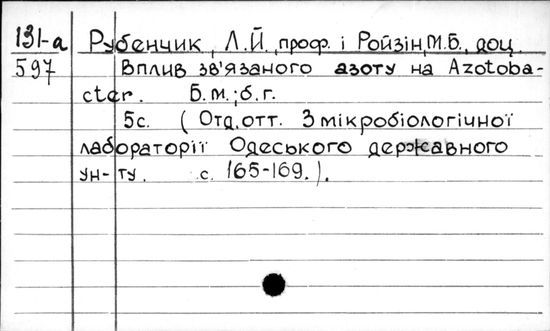 131-а Рубенчик, Л.Й., проф. і Ройзін, М.Б., доц.
597 Вплив зв'язаного азоту на Azotoba-
cter. Б.м.; б.г.
5с. (Отд.отт. З мікробіологічної
лабораторії Одеського державного
ун-ту. с. 165-169.).